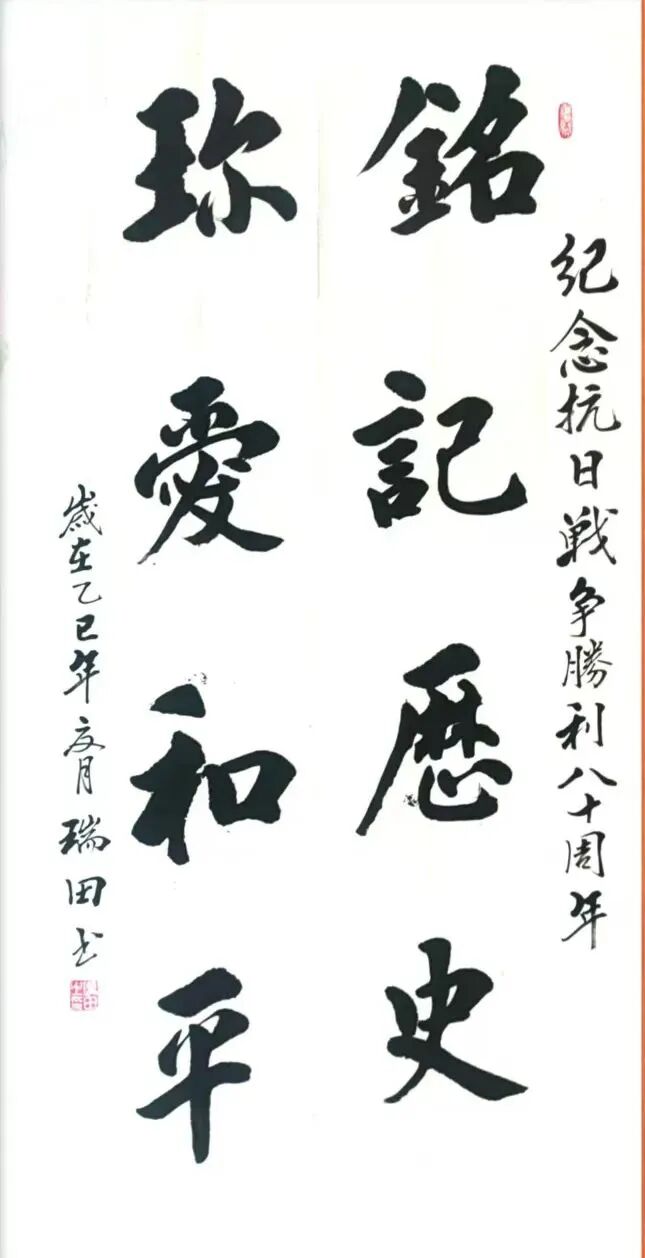 纪念抗日戰争勝利八十周年
銘記歷史
珍愛和平
歲在乙巳年夏月瑞田书